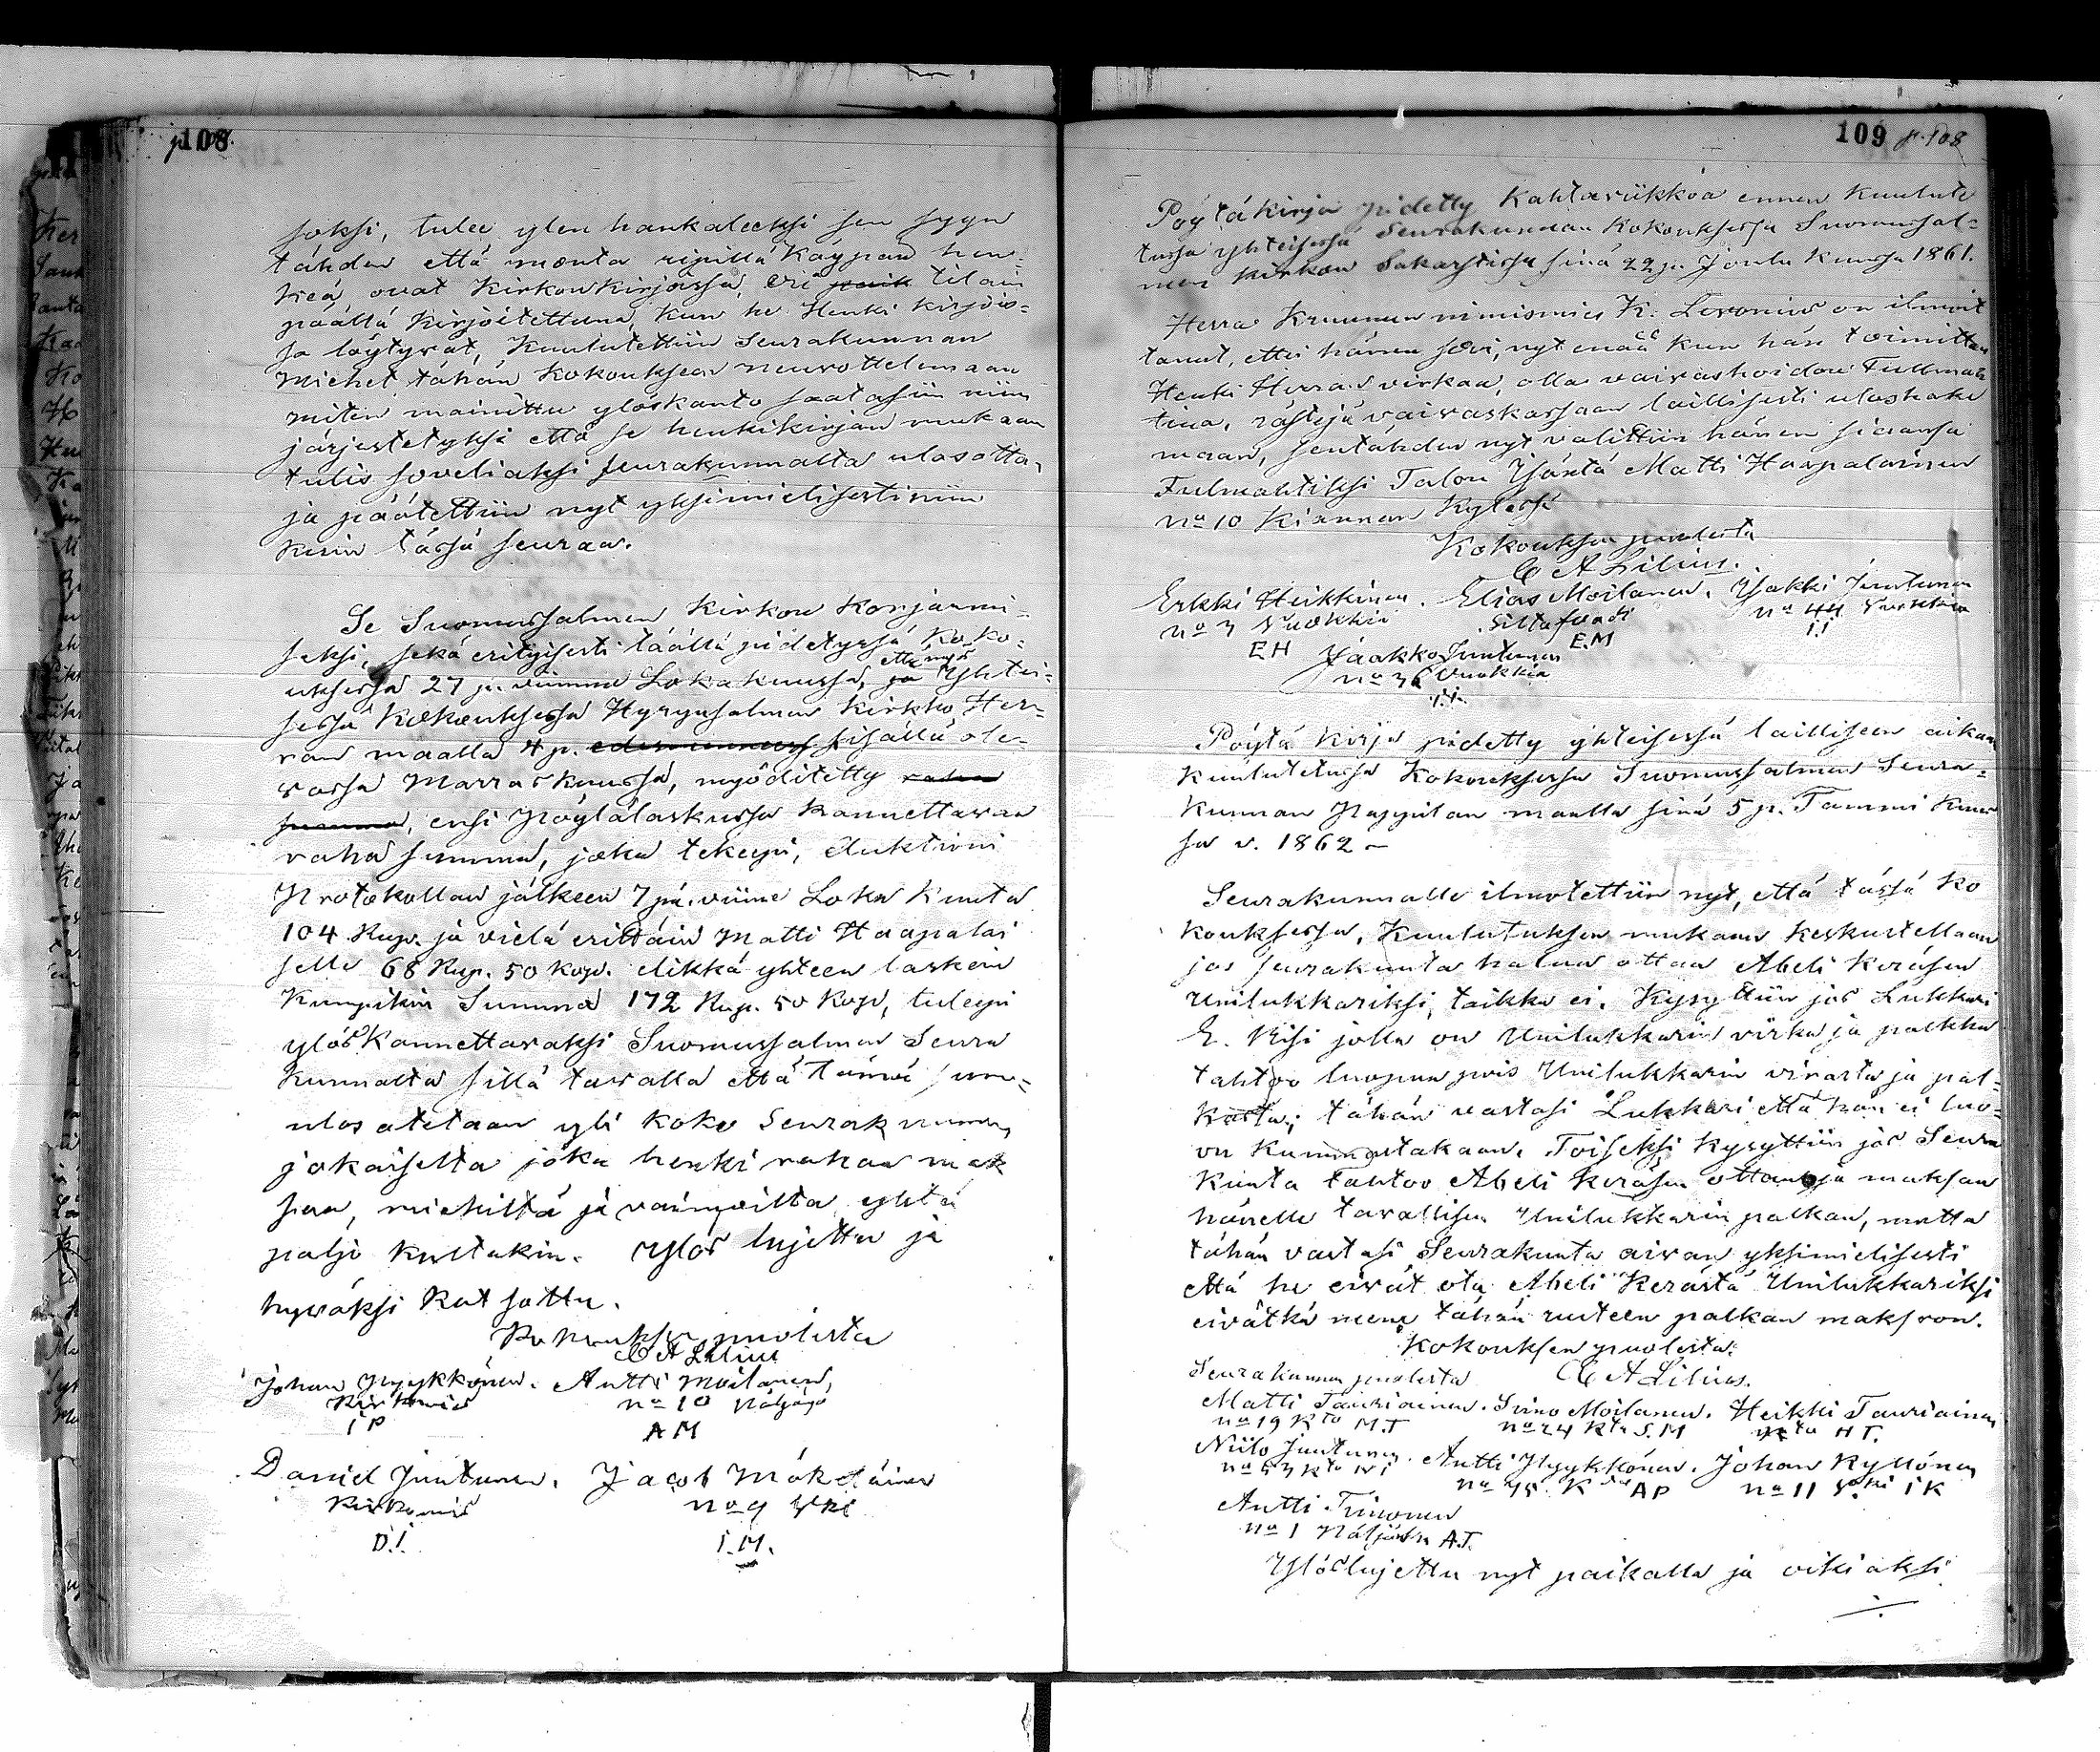 108
soksi, tulee ylen hankaleeksi sen syyn
tähden että monta ripillä käypää hen-
keä, ovat Kirkonkirjoissa, eri paik tilain
päällä kirjoitettuna, kun he Henki kirjois-
sa löytyvät, Kuulutettiin Seurakunnan
Miehet tähän Kokouksen neuvottelemaan
miten mainittu ylöskanto saatasiin niin
järjestetyksi että se henkikirjan mukaan
tulis soveliaksi seurakunnalta ulosotta,
ja päätettiin nyt yksimielisesti niin
kuin tässä seuraa.
Se Suomussalmen Kirkon Korjaami-
seksi, sekä erityisesti täällä pidetyssä Koko-
uksessa 27 p. viimme Lokakuussa, ja että myös Yhtei-
sessä Kokouksessa Hyrynsalmen Kirkko Her-
ran maalla 4 p. sisällä ole-
vassa Marraskuussa, myöditetty rahan
summa, ensi Pöytälaskussa kannettavaa
raha summa, joka tekeepi, Auktioni
Protokollan jälkeen 7 pä. viime Loka Kuuta
104 Rup. ja vielä erittäin Matti Haapalai
selle 68 Rup. 50 kop. elikkä yhteen laskein
Kumpikin Summa 172 Rup. 50 Kop, tuleepi
ylöskannettavaksi Suomussalmen Seura
Kunnalta sillä tavalla että tämä sum-
ulos otetaan yli koko Seurakunnan,
jokaiselta joka henki rahaa mak
saa, miehiltä ja vaimoilta yhtä
paljo kultakin. Ylös lujettu ja
hyväksi katsottu.
Kokouksen puolesta
C A Lilius
Johan Pyykkönen. Antti Moilanen,
Kirkomies no 10 Näljägä
I P AM
Daniel Juntunen. Jacob Mök
Kirkomies no 9
D.I. I.M.
109 p. 108
Pöytäkirja pidetty Kahtaviikkoa ennen Kuulute
tussa yhteisessä Seurakunnan Kokouksessa Suomussal-
men Kirkon Sakarstissa sinä 22 p. Joulu Kuussa 1861.
Herra Kruunun nimismies K. Levonius on ilmoit
tanut, ettei hänen sovi, nyt enää kun hän toimittaa
Henki Herran virkaa, olla vaivashoidon Fullmah
tina, rästejä vaivaskassaan laillisesti uloshake
maan, sentähden nyt valittiin hänen siaansa
Fulmahtiksi Talon Isäntä Matti Haapalainen
no 10 Kiannan Kylässä
Kokouksen puolesta
C A Lilius.
Erkki Heikkinen. Elias Moilanen. Jakki Juntunen
no 3 Vuokkin Siltafordi no 44 Vuokkin
EH E.M I.I
Jaakko Juntunen
no 36 Vuokkin
I.I.
Pöytä kirja pidetty yhteisessä lailliseen aikaan
Kuulutetussa Kokouksessa Suomussalmen Seura-
Kunnan Pappilan maalla sinä 5 p. Tammi Kuus
sa v. 1862 –
Seurakunnalle ilmotettiin nyt, että tässä Ko
kouksessa, Kuulutuksen mukaan keskustellaan
jos seurakunta haluu ottaa Abeli Keräsen
Unilukkariksi, taikka ei. Kysyttiin jos Lukkari
E. Kisi jolla on Unilukkarin virka ja palkka
tahtoo luopua pois Unilukkarin virasta ja pal-
kasta; tähän vastasi Lukkari että hän ei luo-
vu kummastakaan. Toiseksi Kysyttiin jos Seura
Kunta tahtoo Abeli Keräsen ottaa ja maksaa
hänelle tavallisen Unilukkarin palkan, mutta
tähän vastasi Seurakunta aivan yksimielisesti
että he eivät ota Abeli Kerästä Unilukkariksi
eivätkä mene tähän uuteen palkan maksoon.
Kokouksen puolesta:
Seurakunnan puolesta C A Lilius.
Matti Tauriainen. Simo Moilanen. Heikki Tauriainen
no 19 Kta M.T no 24 Kta S.M Kta HT.
Niilo Juntunen. Antti Pyykkönen. Johan Kyllönen
no 53 Kta N I no 45 K AP no 11 IK
Antti Timonen
no 1 Näljänkä A.T.
Ylöslujettu nyt paikalla ja oikiaksi